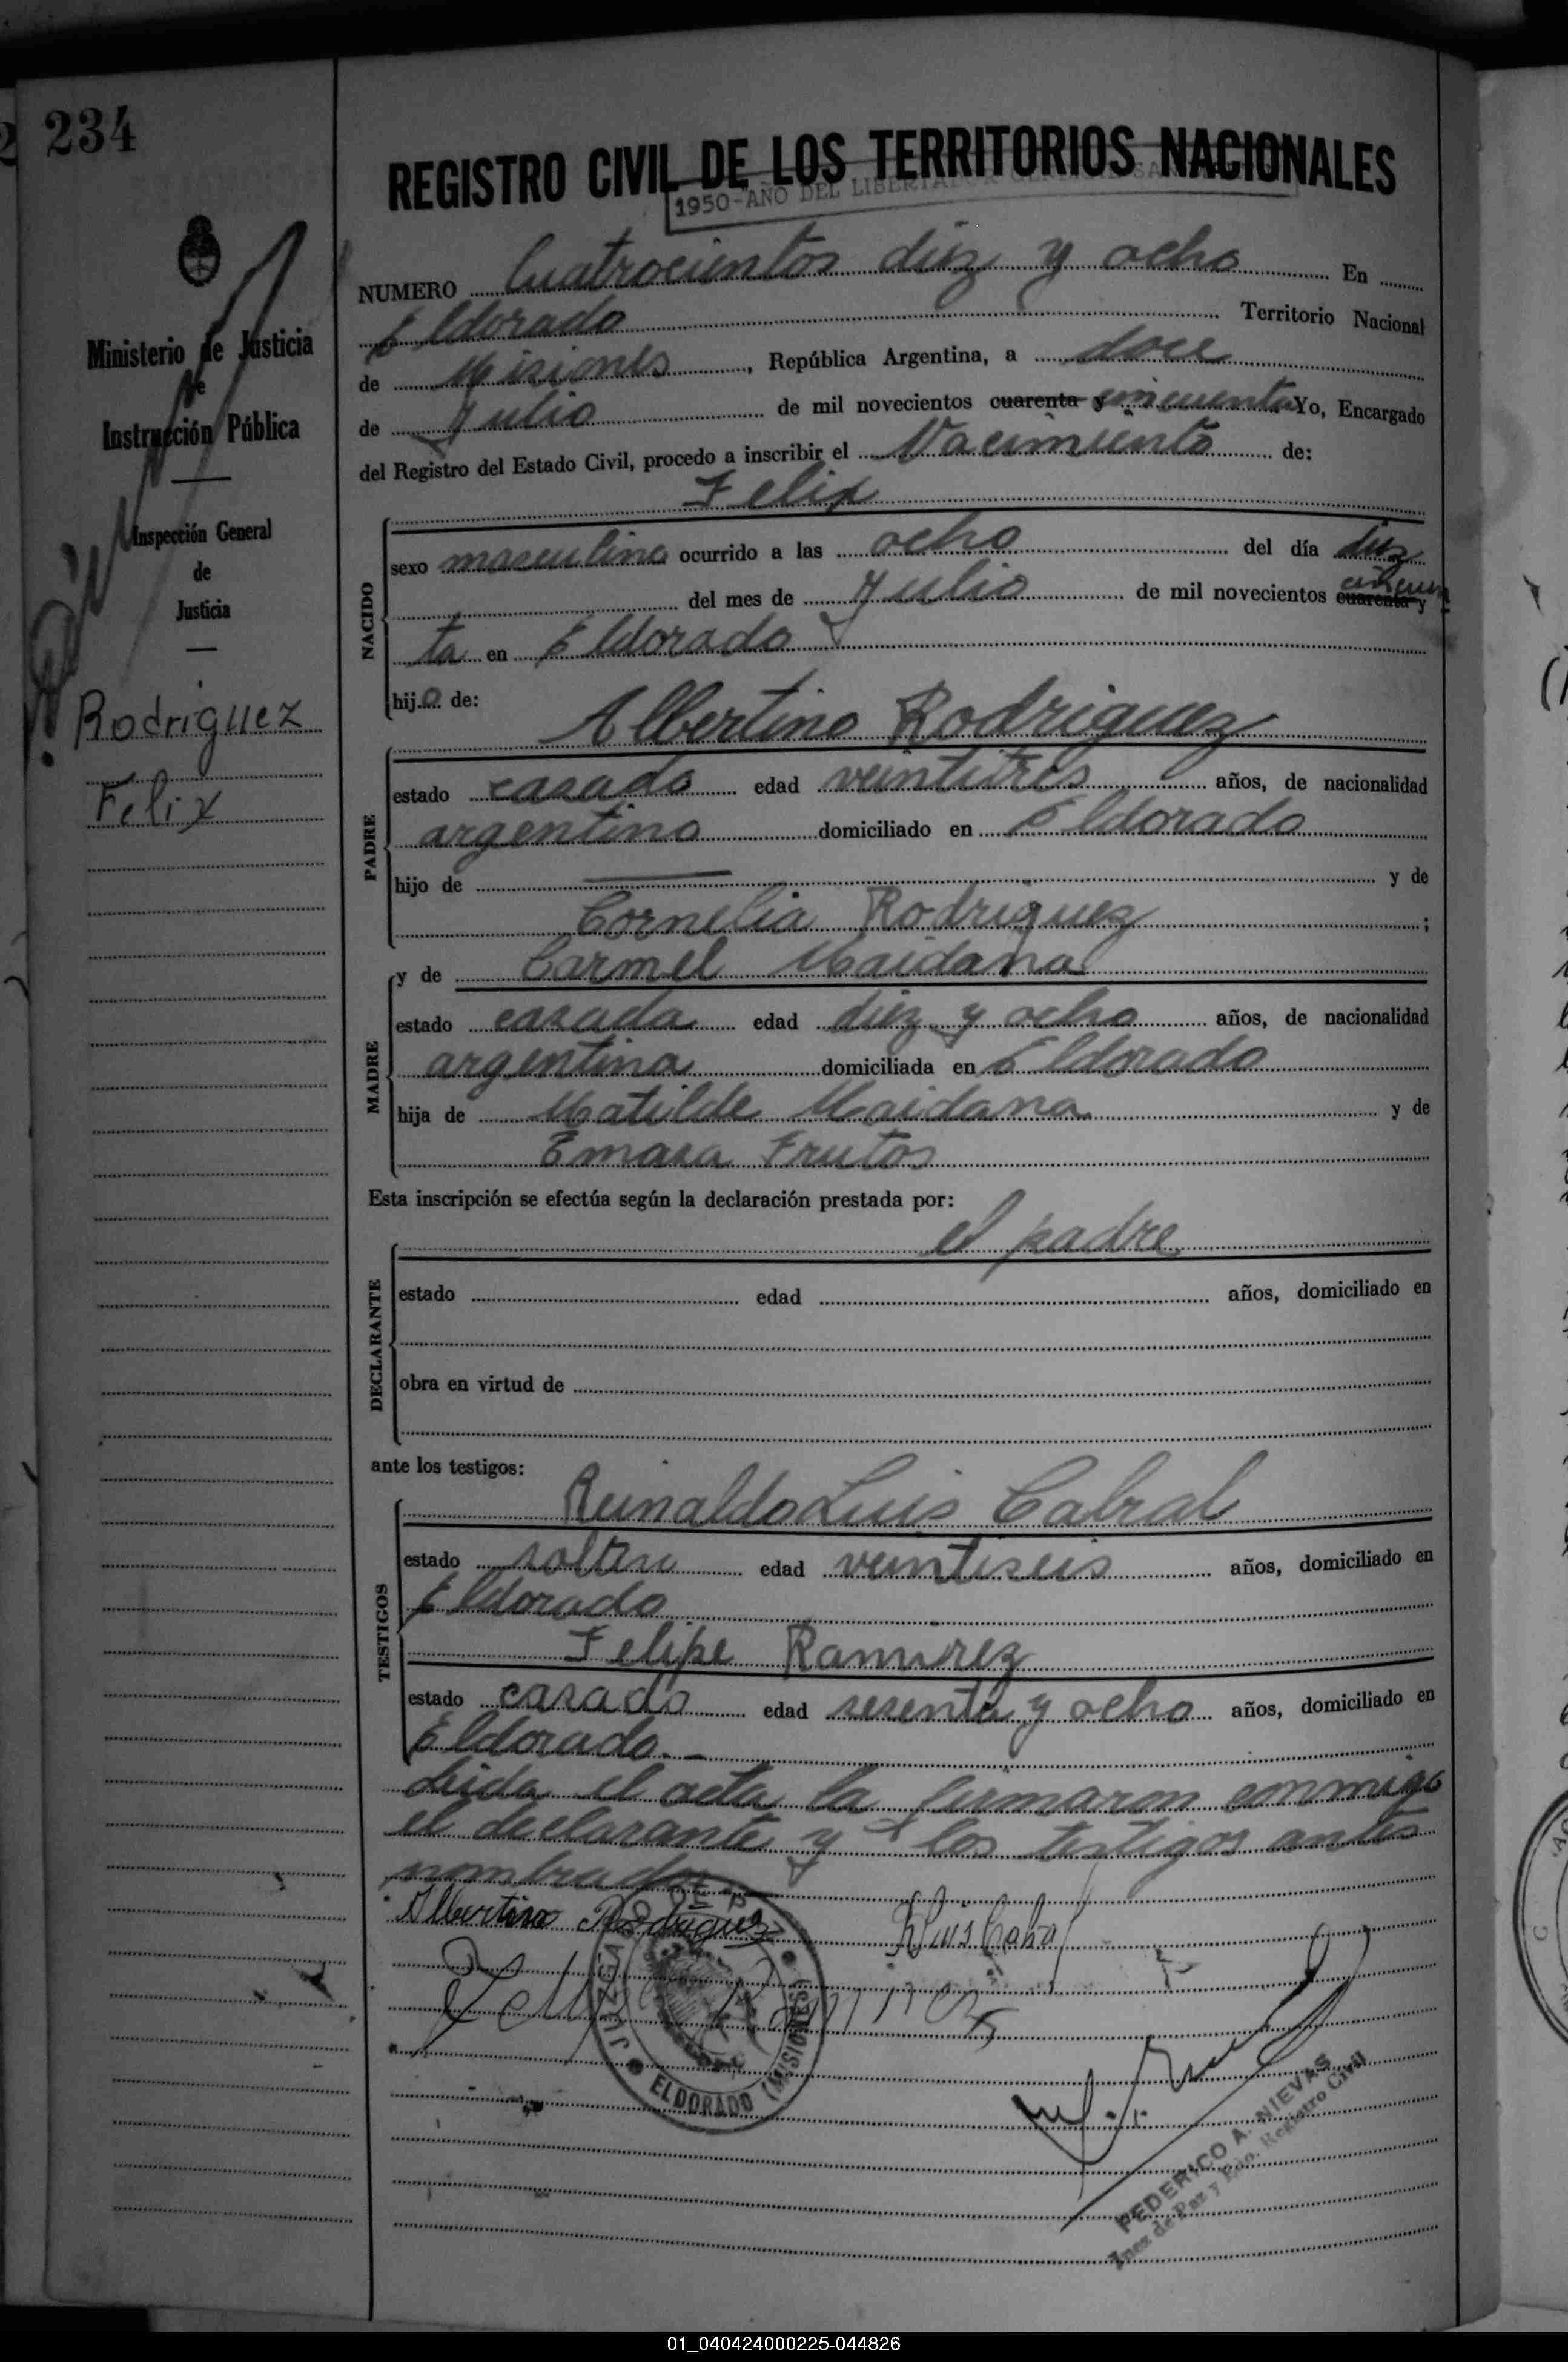 234
REGISTRO CIVIL DE LOS TERRITORIOS NACIONALES
1950-AÑO DEL LIBERTADOR GENERAL SAN
NUMERO Cuatrocientos diez y ocho En
Eldorado Territorio Nacional
de Misiones, República Argentina, a doce
de Julio de mil novecientos cuarenta y cincuenta Yo, Encargado
del Registro del Estado Civil, procedo a inscribir el Nacimiento de:
Felix
Ministerio de Justicia
de
Instrucción Pública
Inspección General
de
Justicia
Rodriguez
Felix
NACIDO
sexo masculino ocurrido a las ocho del día diez
del mes de Julio de mil novecientos cuarenta y cincuen
ta en Eldorado
hijo de:
Albertino Rodriguez
PADRE
estado casado edad veintitres años, de nacionalidad
argentino domiciliado en Eldorado
hijo de y de
Cornelia Rodriguez;
y de Carmel Maidana
MADRE
estado casada edad diez y ocho años, de nacionalidad
argentina domiciliada en Eldorado
hija de Matilde Maidana y de
Emasa Frutos
Esta inscripción se efectúa según la declaración prestada por:
el padre
DECLARANTE
estado edad años, domiciliado en
obra en virtud de
ante los testigos:
Reinaldo Luis Cabral
TESTIGOS
estado edad veintiseis años, domiciliado en
Eldorado
Felipe Ramirez
estado casado edad sesenta y ocho años, domiciliado en
Eldorado.-
Leida el acta la firmaron conmigo
el declarante y los testigos antes
nombrados
Albertino Rodriguez
Felipe Ramirez
ELDORADO (MISIONES)
FEDERICO A. NIEVAS
Juez de Paz y Edo. Registro Civil
01_040424000225-044826